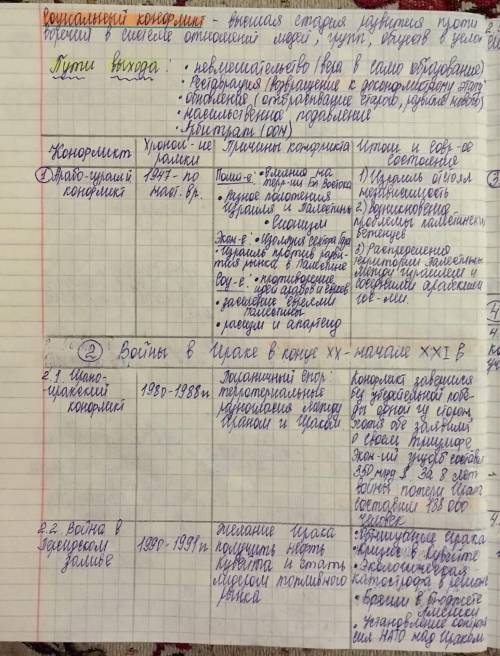 Социальный конфликт - высшая стадия развития проти
воречий в системе отношений людей, групп, обществ в цело
Пути выхода:
• невмешательство (вера в само образование)
• Реставрация (возвращение к доконфликтному этапу)
• Обновление (отбрасывание старого, развитие нового)
• насильственное подавление
• Арбитраж (ООН)
Конфликт
Хронол-ие рамки
Причины конфликта
Итоги и совр-ое состояние
① Арабо-израил конфликт
1947 - по наст. вр.
Полит-е: • Влияние на
терр-ии Бл Востока
• Разное положения
Израиля и Палестины
• Сионизм
Экон-е: • Изоляция сектора Газа
• Израиль против разви-
тия рынка в Палестине
Соц-е: • противоречие
идей арабов и евреев
• заселение евреями
Палестины
• расизм и апартеид
1) Израиль отстоял
независимость
2) Возникновение
проблемы палестинских
беженцев
3) Распределения
территории Палестины
между Израилем и
соседними арабскими
гос-ми.
② Войны в Ираке в конце XX - начале XXI в
2.1. Ирано-
иракский
конфликт
1980-1988гг
Пограничный спор:
территориальные
разногласия между
Ираном и Ираком
Конфликт завершился
без убедительной побе-
ды одной из сторон,
хотя обе заявили
о своем триумфе.
Экон-ий ущерб составил
350 млрд $. За 8 лет
войны потери Ирака
составили
человек
2.2. Война в
Персидском
заливе
1990-1991гг.
Желание Ирака
получить нефть
Кувейта и стать
лидером топливного
рынка
Ирака
• Кризис в Кувейте
• Экологическая
катастрофа в регионе
• Брешь в бюджете
Америки
• Установление контроля
сил НАТО над Ираком